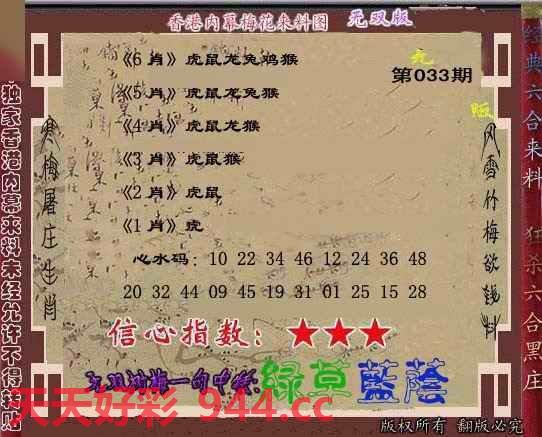 香港内幕梅花来料图 无双版
《6 肖》虎鼠龙兔鸡猴
第033期
《5 肖》虎鼠龙兔猴
《4 肖》虎鼠龙猴
《3 肖》虎鼠猴
《2 肖》虎鼠
《1 肖》虎
心水码：10 22 34 46 12 24 36 48
20 32 44 09 45 19 31 01 25 15 28
信心指数：★★★
绿草蓝荫
天天好彩 944.cc
版权所有 翻版必究
独家香港内幕来料未经允许不得转贴
寒梅屠庄生肖
风雪竹梅欲钱料
经典六合来料 狂杀六合黑庄